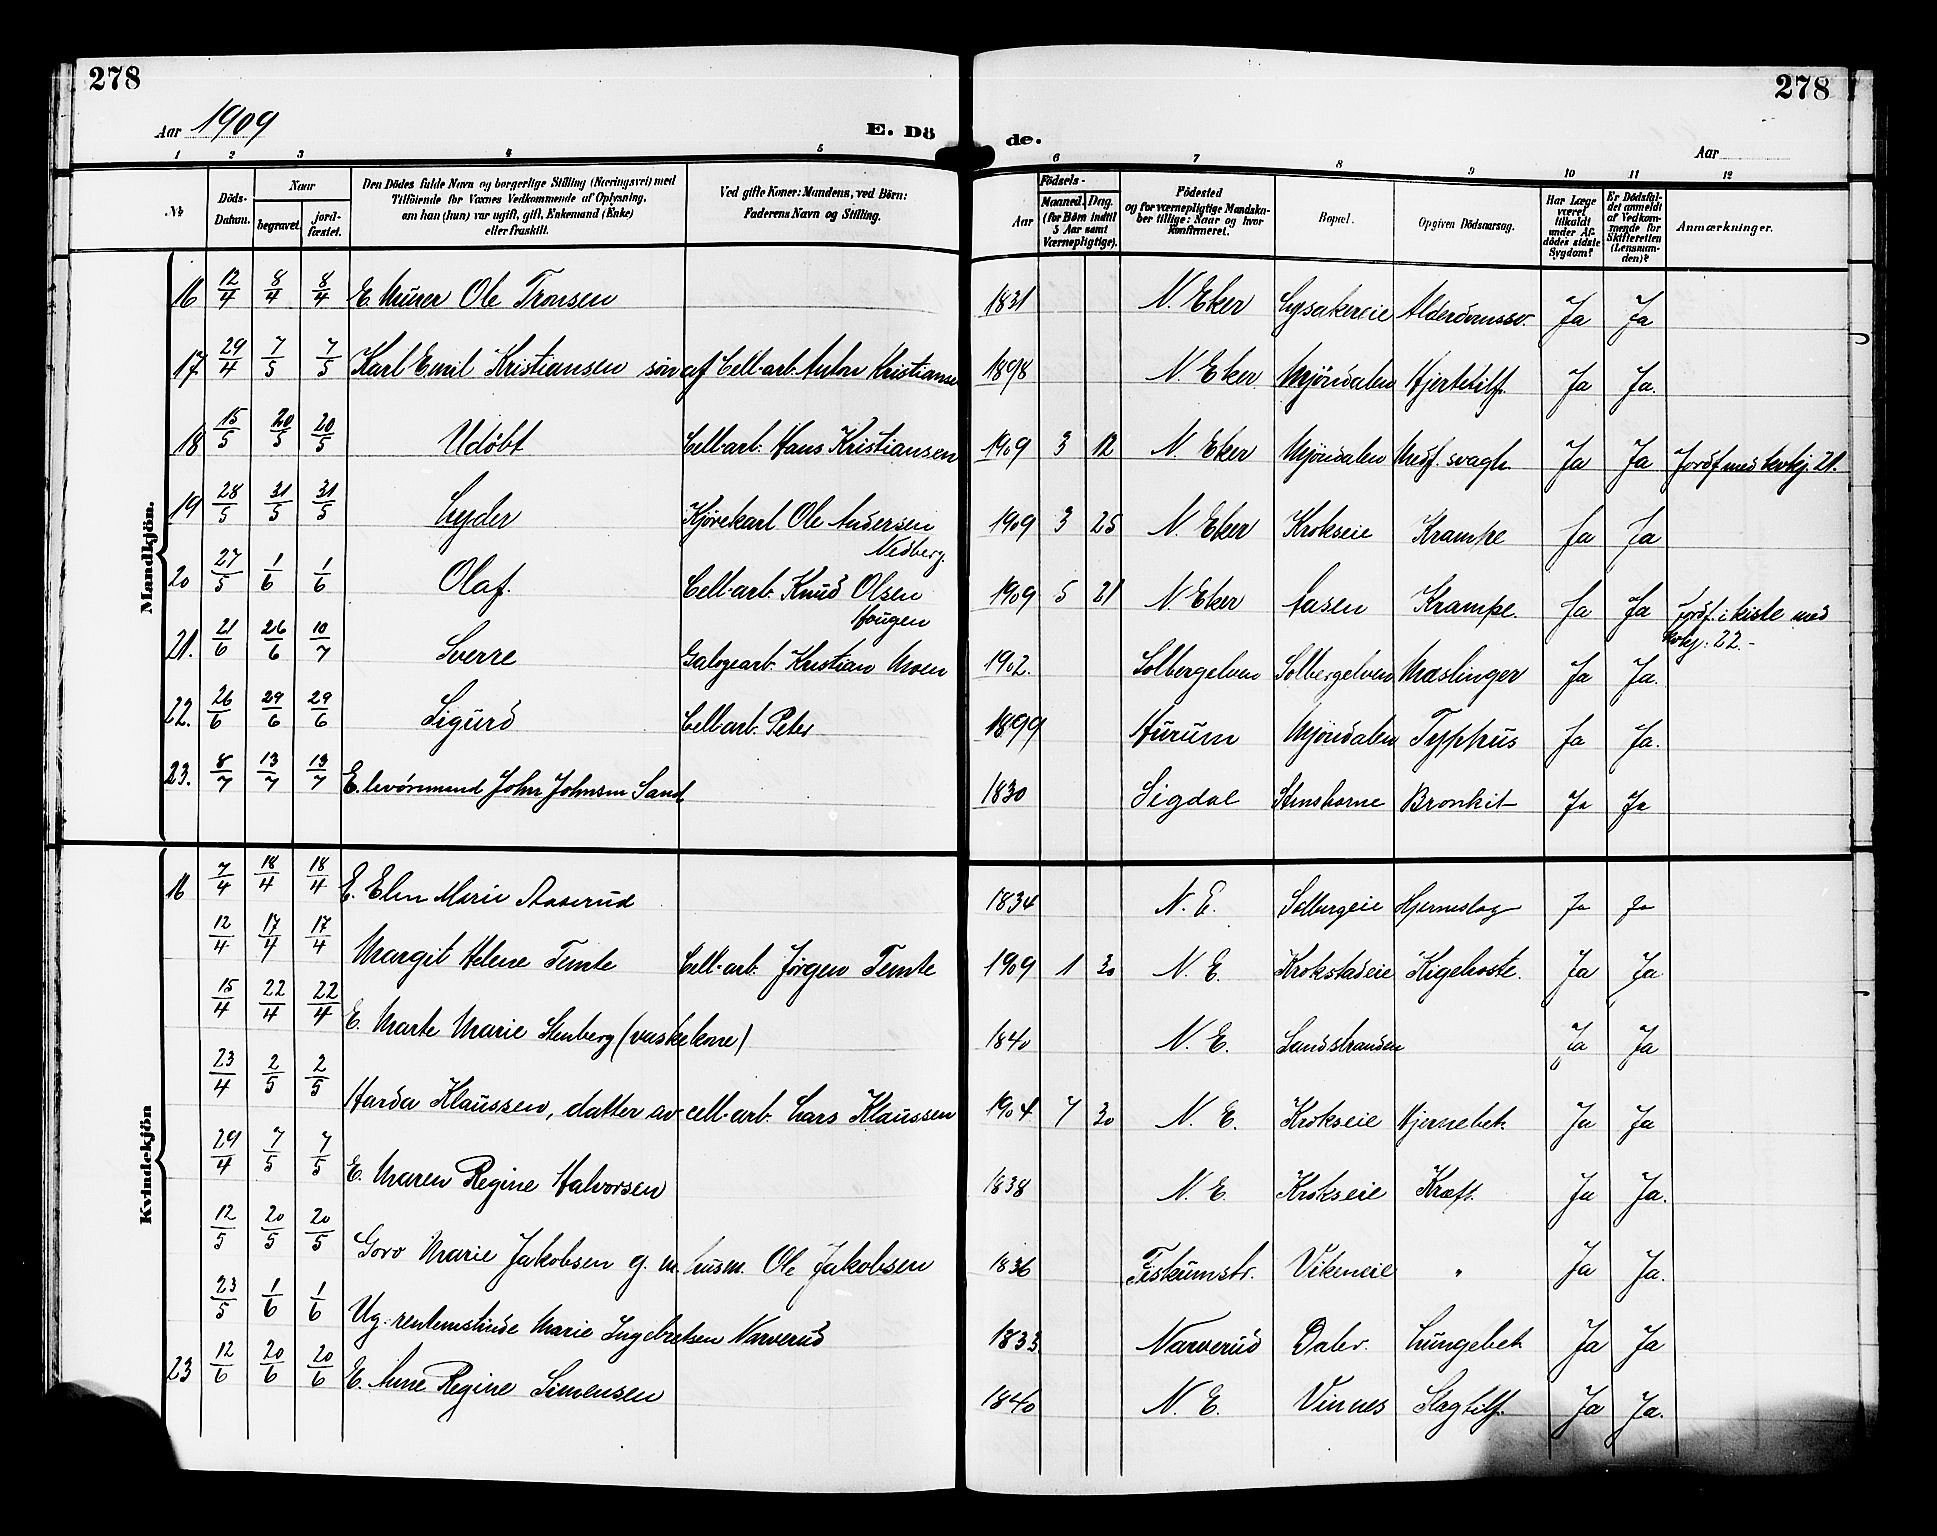 278
278
Aar 1909
E. Dö
de.
Aar
1 2 3 4 5 6 7 8 9 10 11 12
№ Döds-Datum. Naar begravet. jord-fæstet. Den Dödes fulde Navn og borgerlige Stilling (Næringsvei) med Tilföiende for Voxnes Vedkommende af Oplysning, om han (hun) var ugift, gift, Enkemand (Enke) eller fraskilt. Ved gifte Koner: Mandens, ved Börn: Faderens Navn og Stilling. Födsels- Aar Maaned. Dag. (for Börn indtil 5 Aar samt Værnepligtige). Födested og for værnepligtige Mandska-ber tillige: Naar og hvor Konfirmeret. Bopæl. Opgiven Dödsaarsag. Har Læge været tilkaldt under Af-dödes sidste Sygdom? Er Dödsfal-det anmeldt af Vedkom-mende for Skifteretten (Lensman-den)? Anmærkninger.
Mandkjön.
16 12/4 8/4 8/4 E. Murer Ole Tronsen 1831 N. Eker Lysakereie Alderdomssv. Ja Ja
17 29/4 7/5 7/5 Karl Emil Kristiansen søn af Cell-arb. Anton Kristianse 1898 N. Eker Mjöndalen Hjertetilf. Ja Ja.
18 15/5 20/5 20/5 Udøbt Cell-arb. Hans Kristiansen 1909 3 12 N. Eker Mjöndalen Medf. svagh. Ja Ja Jordf med kvkj. 21.
19 28/5 31/5 31/5 Lyder Kjørekarl Ole Andersen Nedberg. 1909 3 25 N. Eker Krokseie Krampe Ja Ja
20 27/5 1/6 1/6 Olaf. Cell-arb. Knud Olsen Haugen 1909 5 21 N. Eker Aasen Krampe. Ja Ja Jordf. i kiste med kvkj: 22.-
21. 21/6 26/6 10/7 Sverre Galogearb. Kristian Moen 1902. Solbergelven Solbergelven Mæslinger Ja Ja.
22. 26/6 29/6 29/6 Sigurd Cell-arb. Peter 1899 Hurum Mjöndalen Typhus Ja Ja.
23. 8/7 13/7 13/7 E. John Johnsen Sand 1830 Sigdal Bronkit Ja Ja
Kvindekjön
16 7/4 18/4 18/4 E. Elen Marie Aaserud 1834 N. E. Solbergeie Hjerneslag Ja Ja
12/4 17/4 17/4 Margit Helene Temte Cell-arb. Jørgen Temte 1909 1 30 N. E. Krokstadeie Kigehoste. Ja Ja
15/4 22/4 22/4 E. Marte Marie Stenberg (vaskekone) 1840 N. E. Sandstranden Ja Ja
23/4 2/5 2/5 Harda Klaussen, datter av cell-arb. Lars Klaussen 1904 7 30 N. E. Krokseie Hjernebet. Ja Ja
29/4 7/5 7/5 E. Maren Regine Halvorsen 1838 N. E. Krokseie Kræft. Ja Ja.
12/5 20/5 20/5 Goro Marie Jakobsen g. m. husm. Ole Jakobsen 1836 Fiskumstr. Vikeneie " Ja Ja.
23/5 1/6 1/6 Ug. Marie Ingebretsen Narverud 1833 Narverud Daler. Lungebet. Ja Ja
23 12/6 20/6 20/6 E. Anne Regine Simensen 1840 N. E. Vinnes Slagtilf. Ja Ja.